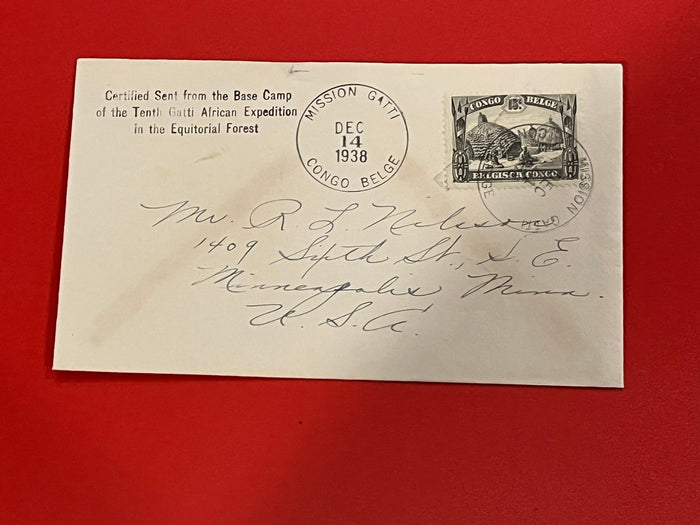 Certified Sent from the Base Camp
of the Tenth Gatti African Expedition
in the Equitorial Forest
MISSION GATTI
DEC
14
1938
CONGO BELGE
CONGO BELGE
BELGISCH CONGO
MISSION GATTI
DEC
Mr. R. L. Nelson
1409 Sixth St., S. E.
Minneapolis Minn.
U. S. A.